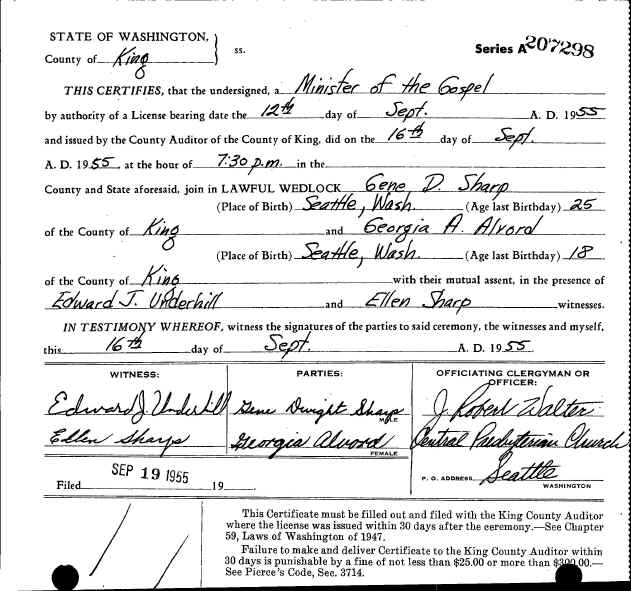 STATE OF WASHINGTON, } ss. Series A 207298
County of King
THIS CERTIFIES, that the undersigned, a Minister of the Gospel
by authority of a License bearing date the 12th day of Sept. A. D. 1955
and issued by the County Auditor of the County of King, did on the 16th day of Sept.
A. D. 1955, at the hour of 7:30 p.m. in the
County and State aforesaid, join in LAWFUL WEDLOCK Gene D. Sharp
(Place of Birth) Seattle, Wash. (Age last Birthday) 25
of the County of King and Georgia A. Alvord
(Place of Birth) Seattle, Wash. (Age last Birthday) 18
of the County of King with their mutual assent, in the presence of
Edward J. Underhill and Ellen Sharp witnesses.
IN TESTIMONY WHEREOF, witness the signatures of the parties to said ceremony, the witnesses and myself,
this 16th day of Sept. A. D. 1955
WITNESS: PARTIES: OFFICIATING CLERGYMAN OR OFFICER:
Edward J Underhill Gene Dwight Sharp MALE J. Robert Walter
Ellen Sharp Georgia Alvord FEMALE Central Presbyterian Church
Filed SEP 19 1955 19 P. O. ADDRESS Seattle WASHINGTON
This Certificate must be filled out and filed with the King County Auditor
where the license was issued within 30 days after the ceremony.—See Chapter
59, Laws of Washington of 1947.
Failure to make and deliver Certificate to the King County Auditor within
30 days is punishable by a fine of not less than $25.00 or more than $300.00.—
See Pierce's Code, Sec. 3714.